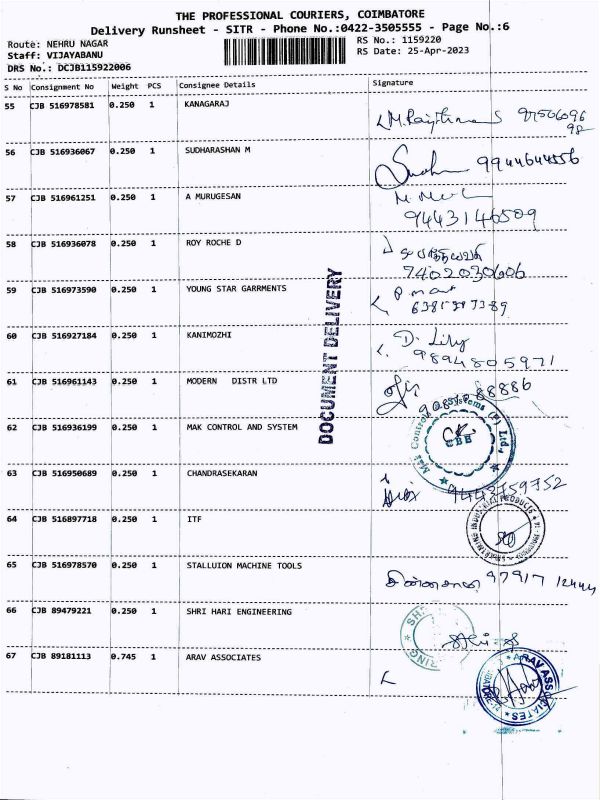 THE PROFESSIONAL COURIERS, COIMBATORE
Delivery Runsheet - SITR - Phone No.:0422-3505555 - Page No.:6
Route: NEHRU NAGAR
RS No.: 1159220
Staff: VIJAYABANU
RS Date: 25-Apr-2023
DRS No.: DCJB115922006
S No Consignment No Weight PCS Consignee Details Signature
55 CJB 516978581 0.250 1 KANAGARAJ
56 CJB 516936067 0.250 1 SUDHARASHAN M 9944644556
57 CJB 516961251 0.250 1 A MURUGESAN
9443146509
58 CJB 516936078 0.250 1 ROY ROCHE D
7402030606
59 CJB 516973590 0.250 1 YOUNG STAR GARRMENTS
DOCUMENT DELIVERY
60 CJB 516927184 0.250 1 KANIMOZHI D. Lily
9894805971
61 CJB 516961143 0.250 1 MODERN DISTR LTD
62 CJB 516936199 0.250 1 MAK CONTROL AND SYSTEM
Mak Control Systems (P) Ltd.,
CBE
63 CJB 516950689 0.250 1 CHANDRASEKARAN 9443759752
64 CJB 516897718 0.250 1 ITF
65 CJB 516978570 0.250 1 STALLUION MACHINE TOOLS 97917 12444
66 CJB 89479221 0.250 1 SHRI HARI ENGINEERING
67 CJB 89181113 0.745 1 ARAV ASSOCIATES
ARAV ASSOCIATES